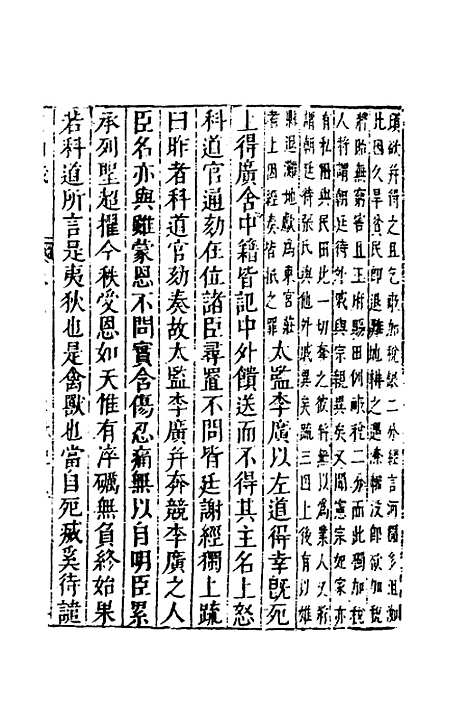 頃畝并得之且乞畝加稅銀二分經言河間多沮洳
此因久旱貧民即退灘地耕之遇潦輒沒即欲加稅
將貽無窮害且王府賜田例畝稅二分而此獨加稅
人將謂朝廷待外戚與宗親異矣又聞憲宗妃家亦
有私田與民田此一切奪之彼何以為業人又將
謂朝廷待張氏與他外戚異矣疏三四上後有以雄
縣退灘地獻為東宮莊
者上因經奏皆抵之罪太監李廣以左道得幸既死
上得廣舍中籍皆記中外饋送而不得其主名上怒
科道官遍劾在位諸臣尋置不問皆廷謝經獨上疏
曰昨者科道官劾奏故太監李廣并奔競李廣之人
臣名亦與雖蒙恩不問實含傷忍痛無以自明臣累
承列聖超擢今秩受恩如天惟有淬礪無負終始果
若科道所言是夷狄也是禽獸也當自死滅奚待譴